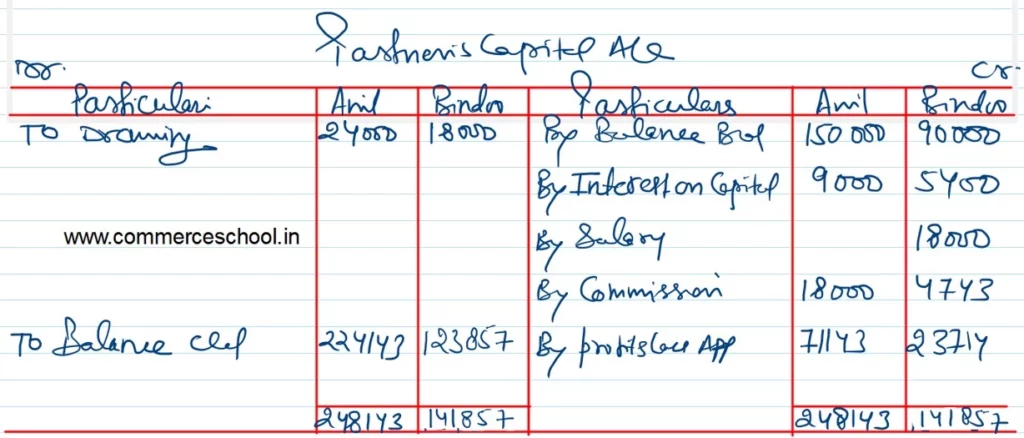 Partner's Capital A/c
Dr. Cr.
Particulars Anil Bindoo Particulars Anil Bindoo
To Drawing 24000 18000 By Balance B/d 150000 90000
By Interest on Capital 9000 5400
www.commerceschool.in By Salary 18000
By Commission 18000 4743
To Balance c/d 224143 123857 By profit & loss App 71143 23714
248143 141857 248143 141857